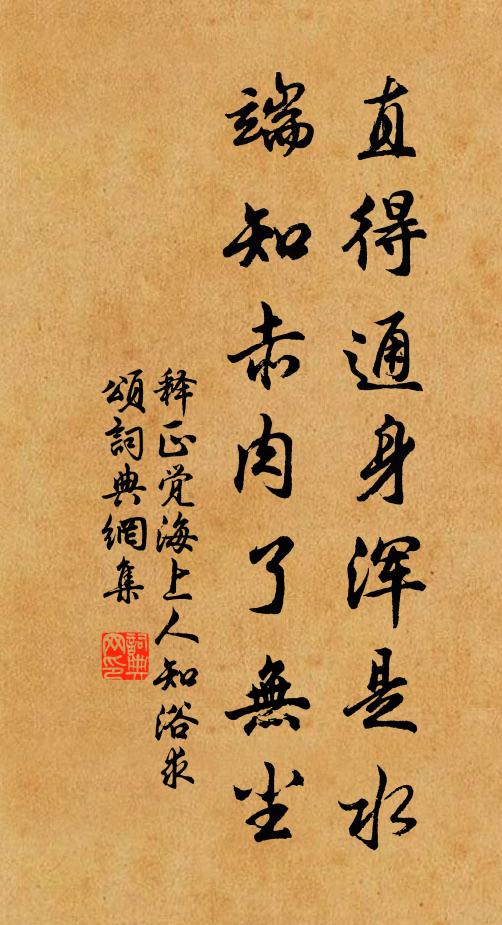 直得通身浑是水
端知赤肉了無尘
释正觉海上人知浴求
頌詞典網集
詞典
网印